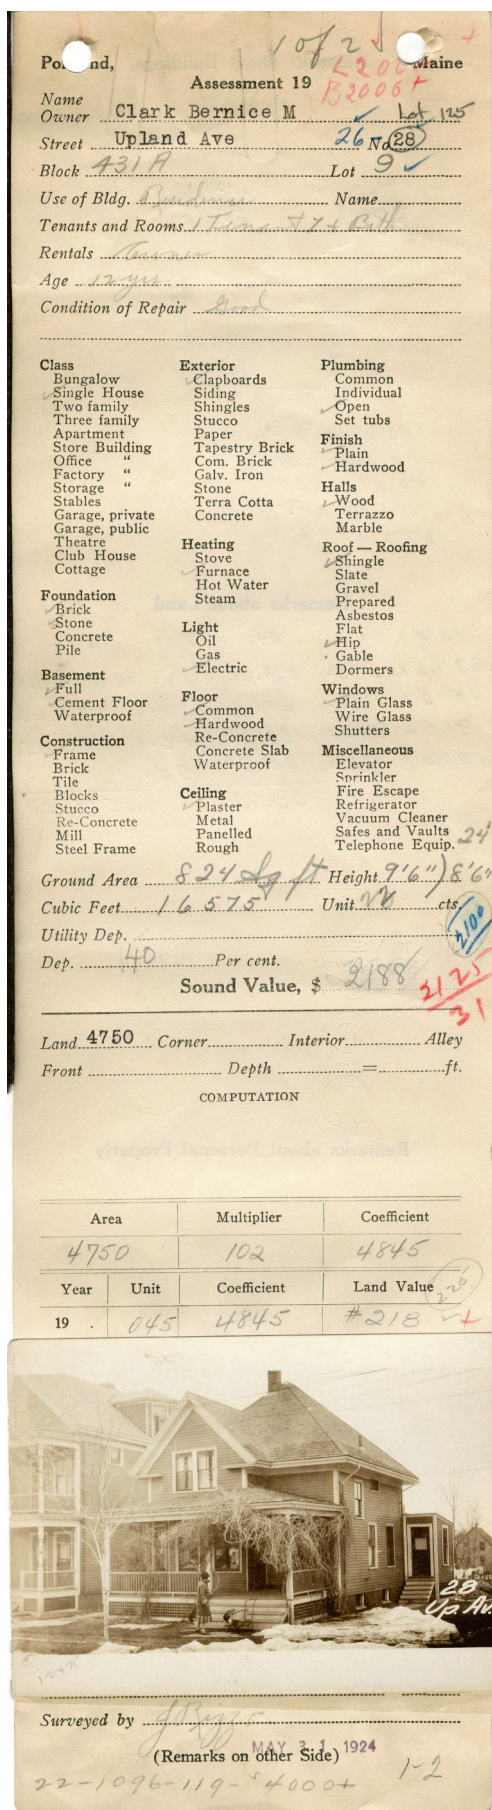 1 of 2
Portland, Maine
Assessment 19
B2006+
Name
Owner Clark Bernice M Lot 125
Street Upland Ave 26 - No 28
Block 431 A Lot 9
Use of Bldg. Residence Name
Tenants and Rooms 1 Tenant 7 + Bath
Rentals Owner
Age 12 yrs
Condition of Repair Good
Class
Bungalow
Single House
Two family
Three family
Apartment
Store Building
Office "
Factory "
Storage "
Stables
Garage, private
Garage, public
Theatre
Club House
Cottage
Foundation
Brick
Stone
Concrete
Pile
Basement
Full
Cement Floor
Waterproof
Construction
Frame
Brick
Tile
Blocks
Stucco
Re-Concrete
Mill
Steel Frame
Exterior
Clapboards
Siding
Shingles
Stucco
Paper
Tapestry Brick
Com. Brick
Galv. Iron
Stone
Terra Cotta
Concrete
Heating
Stove
Furnace
Hot Water
Steam
Light
Oil
Gas
Electric
Floor
Common
Hardwood
Re-Concrete
Concrete Slab
Waterproof
Ceiling
Plaster
Metal
Panelled
Rough
Plumbing
Common
Individual
Open
Set tubs
Finish
Plain
Hardwood
Halls
Wood
Terrazzo
Marble
Roof — Roofing
Shingle
Slate
Gravel
Prepared
Asbestos
Flat
Hip
Gable
Dormers
Windows
Plain Glass
Wire Glass
Shutters
Miscellaneous
Elevator
Sprinkler
Fire Escape
Refrigerator
Vacuum Cleaner
Safes and Vaults
Telephone Equip. 24'
Ground Area 824 Sq ft Height 9'6") 8'6"
Cubic Feet 16575 Unit 22 cts.
2100
Utility Dep.
Dep. 40 Per cent.
Sound Value, $ 2188
2125
31
Land 4750 Corner Interior Alley
Front Depth = ft.
COMPUTATION
Area Multiplier Coefficient
4750 102 4845
Year Unit Coefficient Land Value
19 . 045 4845 #218
28
Up. Av.
Surveyed by J Rizzo
MAY 31 1924
(Remarks on other Side)
22-1096-119-$4000+ 1-2